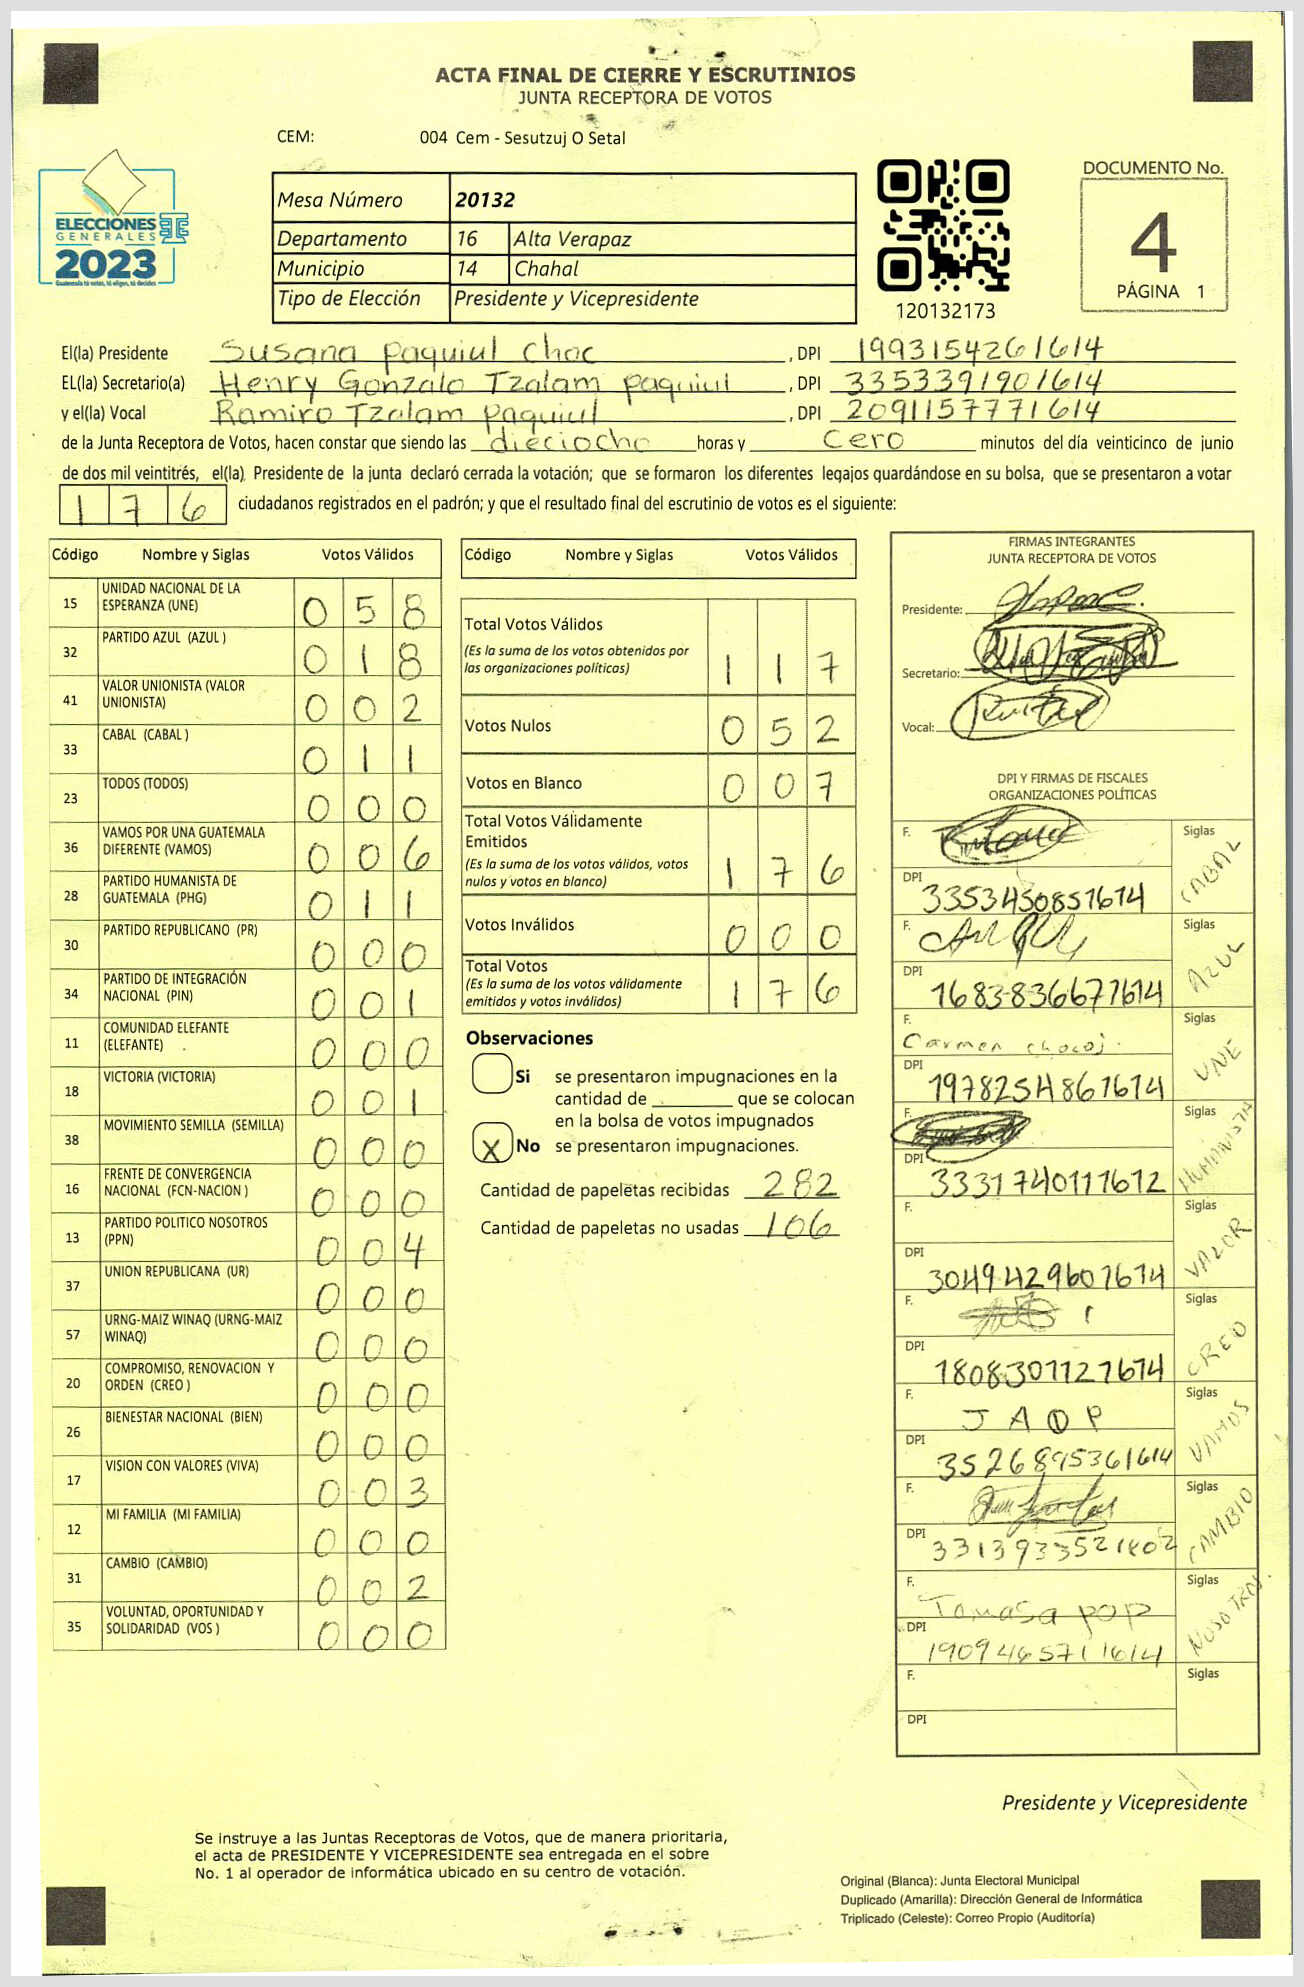 ACTA FINAL DE CIERRE Y ESCRUTINIOS
JUNTA RECEPTORA DE VOTOS
CEM: 004 Cem - Sesutzuj O Setal
ELECCIONES
GENERALES
2023
Guatemala tú votas, tú eliges, tú decides
Mesa Número 20132
Departamento 16 Alta Verapaz
Municipio 14 Chahal
Tipo de Elección Presidente y Vicepresidente
120132173
DOCUMENTO No.
4
PÁGINA 1
El(la) Presidente Susana Paquiul Choc, DPI 1993154261614
EL(la) Secretario(a) Henry Gonzalo Tzalam Paquiul, DPI 3353391901614
y el(la) Vocal Ramiro Tzalam Paquiul, DPI 2091157771614
de la Junta Receptora de Votos, hacen constar que siendo las dieciocho horas y cero minutos del día veinticinco de junio
de dos mil veintitrés, el(la) Presidente de la junta declaró cerrada la votación; que se formaron los diferentes legajos guardándose en su bolsa, que se presentaron a votar
176 ciudadanos registrados en el padrón; y que el resultado final del escrutinio de votos es el siguiente:
Código Nombre y Siglas Votos Válidos
15 UNIDAD NACIONAL DE LA ESPERANZA (UNE) 0 5 8
32 PARTIDO AZUL (AZUL ) 0 1 8
41 VALOR UNIONISTA (VALOR UNIONISTA) 0 0 2
33 CABAL (CABAL ) 0 1 1
23 TODOS (TODOS) 0 0 0
36 VAMOS POR UNA GUATEMALA DIFERENTE (VAMOS) 0 0 6
28 PARTIDO HUMANISTA DE GUATEMALA (PHG) 0 1 1
30 PARTIDO REPUBLICANO (PR) 0 0 0
34 PARTIDO DE INTEGRACIÓN NACIONAL (PIN) 0 0 1
11 COMUNIDAD ELEFANTE (ELEFANTE) 0 0 0
18 VICTORIA (VICTORIA) 0 0 1
38 MOVIMIENTO SEMILLA (SEMILLA) 0 0 0
16 FRENTE DE CONVERGENCIA NACIONAL (FCN-NACION ) 0 0 0
13 PARTIDO POLITICO NOSOTROS (PPN) 0 0 4
37 UNION REPUBLICANA (UR) 0 0 0
57 URNG-MAIZ WINAQ (URNG-MAIZ WINAQ) 0 0 0
20 COMPROMISO, RENOVACION Y ORDEN (CREO ) 0 0 0
26 BIENESTAR NACIONAL (BIEN) 0 0 0
17 VISION CON VALORES (VIVA) 0 0 3
12 MI FAMILIA (MI FAMILIA) 0 0 0
31 CAMBIO (CAMBIO) 0 0 2
35 VOLUNTAD, OPORTUNIDAD Y SOLIDARIDAD (VOS ) 0 0 0
Código Nombre y Siglas Votos Válidos
Total Votos Válidos
(Es la suma de los votos obtenidos por
las organizaciones políticas) 1 1 7
Votos Nulos 0 5 2
Votos en Blanco 0 0 7
Total Votos Válidamente
Emitidos
(Es la suma de los votos válidos, votos
nulos y votos en blanco) 1 7 6
Votos Inválidos 0 0 0
Total Votos
(Es la suma de los votos válidamente
emitidos y votos inválidos) 1 7 6
Observaciones
Si se presentaron impugnaciones en la
cantidad de ________ que se colocan
en la bolsa de votos impugnados
X No se presentaron impugnaciones.
Cantidad de papeletas recibidas 282
Cantidad de papeletas no usadas 106
FIRMAS INTEGRANTES
JUNTA RECEPTORA DE VOTOS
Presidente:
Secretario:
Vocal:
DPI Y FIRMAS DE FISCALES
ORGANIZACIONES POLÍTICAS
F. Siglas CABAL
DPI 3353450851614
F. Siglas AZUL
DPI 1683836671614
F. Carmen chocoj Siglas UNE
DPI 1978254861614
F. Siglas HUMANISTA
DPI 3331740111612
F. Siglas VALOR
DPI 3049429601614
F. Siglas CREO
DPI 1808301121614
F. JAOP Siglas VAMOS
DPI 3526895361614
F. Siglas CAMBIO
DPI 3313933521802
F. Tomasa pop Siglas NOSOTROS
DPI 1909465711614
F. Siglas
DPI
Presidente y Vicepresidente
Se instruye a las Juntas Receptoras de Votos, que de manera prioritaria,
el acta de PRESIDENTE Y VICEPRESIDENTE sea entregada en el sobre
No. 1 al operador de informática ubicado en su centro de votación.
Original (Blanca): Junta Electoral Municipal
Duplicado (Amarilla): Dirección General de Informática
Triplicado (Celeste): Correo Propio (Auditoría)